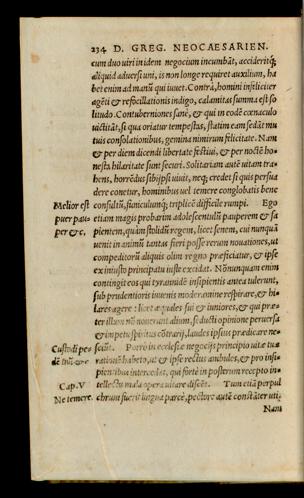 234 D. GREG. NEOCAESARIEN.
cum duo uiri in idem negocium incumbāt, acciderítq́;
aliquid aduersi uni, is non longe requiret auxilium, ha
bet enim ad manū qui iuuet. Contrà, homini infeliciter
agēti & refocillationis indigo, calamitas summa est so
litudo. Contuberniones sanè, & qui in eodē cœnaculo
uictitāt, si qua oriatur tempestas, statim eam sedāt mu
tuis consolationibus, gemina nimirum felicitate. Nam
& per diem dicendi libertate festiui, & per noctē ho=
nesta hilaritate sunt securi. Solitariam autē uitam tra=
hens, horrēdus sibijpsi uiuit, neq; credet si quis persua
dere conetur, hominibus uel temere conglobatis bene
Melior est consultū, funiculumq́; triplicē difficile rumpi. Ego
puer pau= etiam magis probarim adolescentulū pauperem & sa
per &c. pientem, quàm stolidū regem, licet senem, cui nunquā
uenit in animū tantas fieri posse rerum nouationes, ut
competitorū aliquis olim regno præficiatur, & ipse
ex iniusto principatu iuste excidat. Nō nunquam enim
contingit eos qui tyrannidē insipientis antea tulerunt,
sub prudentioris iuuenis moderamine respirare, & hi=
lares agere: licet æquales sui & iuniores, & qui præ=
ter illum nō nouerunt alium, seducti opinione peruersa
& impetu spiritus cōtrarij, laudes ipsius prædicare ne=
Custodi pe= sciūt. Porrò in ecclesiæ negocijs principio uitæ tuæ
dē tuū &c. rationē habeto, ut & ipse rectius ambules, & pro insi=
pientibus intercedas, qui fortè in posterum recepto in=
Cap. V tellectu mala opera uitare discēt. Tum etiā perpul
Ne temere. chrum fuerit linguæ parcè, pectore autē constāter uti.
Nam